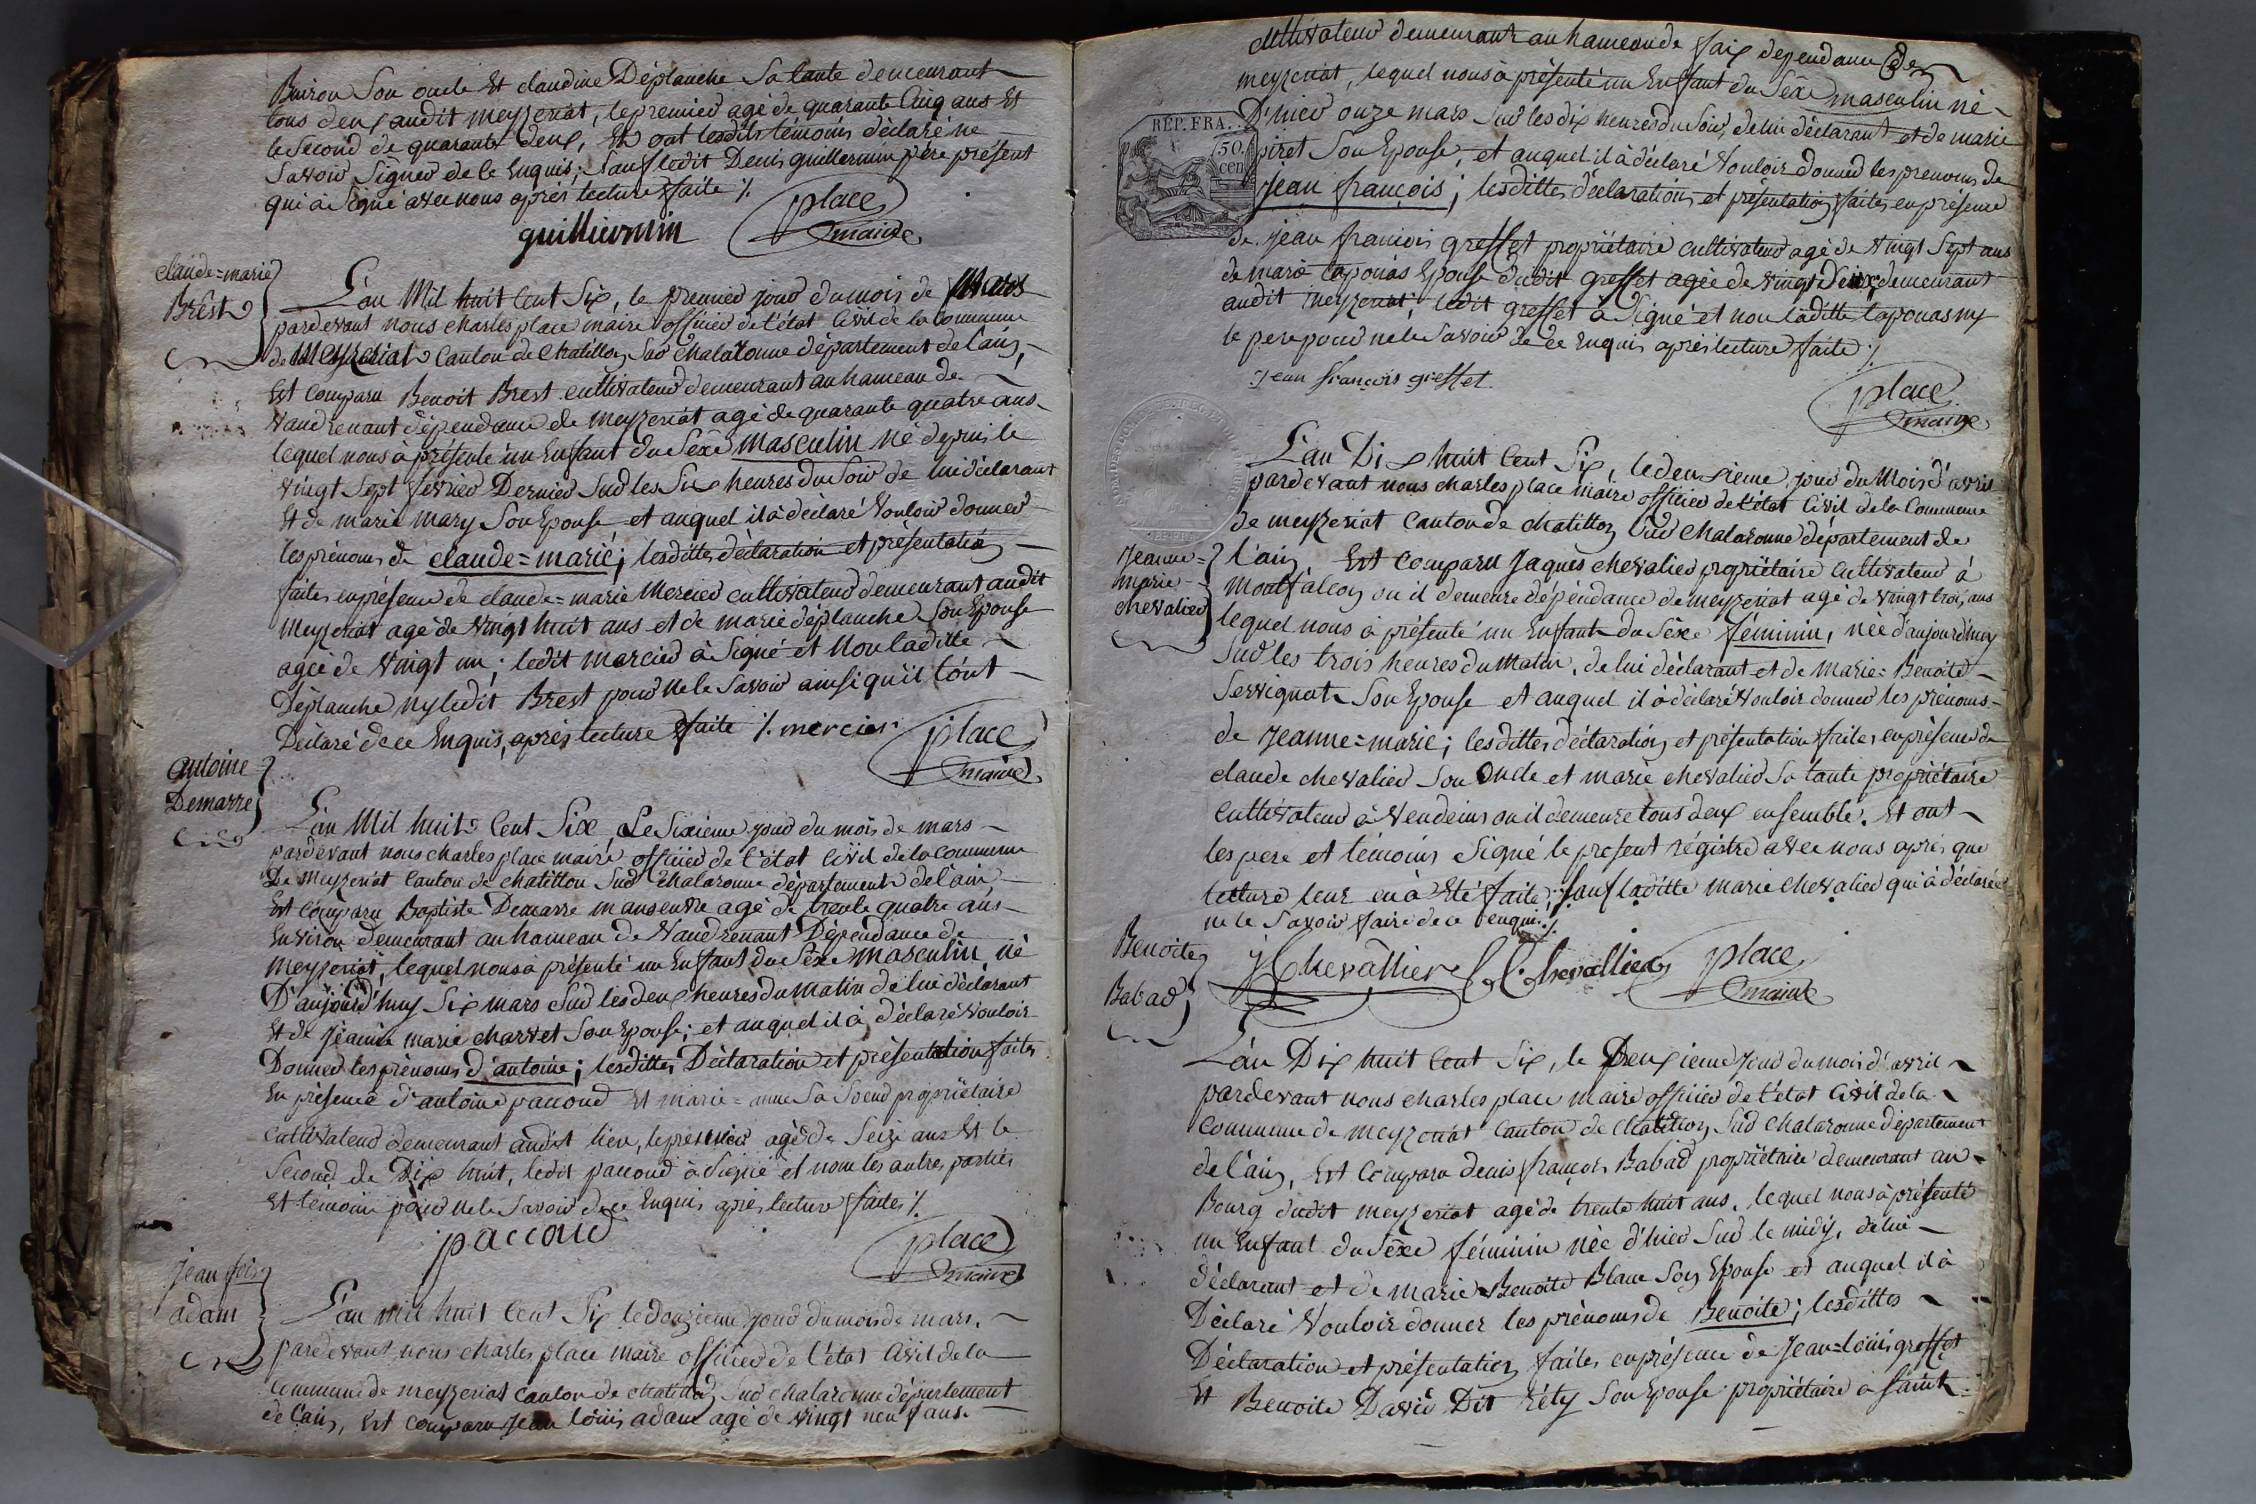 Buiron Son oncle Et claudine Déplanche Sa tante demeurant
tous deux audit meyzeriat, le premier agé de quarante Cinq ans Et
le Second de quarante deux, Et ont lesdits témoins déclaré ne
Savoir Signer de le Enquis; Sauf ledit Denis guillermin père présent
qui à Signé avec nous après lecture faite ./.
guilliermin
place
maire
claude=marie
Brest
L'an Mil huit Cent Six, le premier jour du mois de Mars
pardevant nous charles place maire officier de l'état Civil de la Commune
de Meyzeriat Canton de Chatillon Sur Chalaronne département de l'ain,
Est Comparu Benoit Brest cultivateur demeurant au hameau de
Vaudrenant dépendance de meyzeriat agé de quarante quatre ans
lequel nous à présenté un Enfant du Séxe masculin né depuis le
vingt Sept février Dernier Sur les Six heures du Soir de lui déclarant
Et de marie mary Son Epouse et auquel il à déclaré Vouloir donner
les prénoms de claude=marie; lesdittes déclaration et présentation
faites en présence de claude=marie Mercier cultivateur demeurant audit
Meyzeriat agé de Vingt huit ans et de marie déplanche Son Epouse
agée de Vingt un; ledit mercier à Signé et Non laditte
Déplanche ny ledit Brest pour ne le Savoir ainsi qu'il l'ont
Déclaré de ce Enquis, après lecture faite ./. mercier
place
maire
antoine
Demarre
L'an Mil huit Cent Six Le Sixieme jour du mois de mars
pardevant nous charles place maire officier de l'état Civil de la Commune
De Meyzeriat Canton de chatillon Sur Chalaronne département de l'ain,
Est Comparu Baptiste Demarre manoeuvre agé de trente quatre ans
Environ demeurant au hameau de Vaudrenant Dépendance de
meyzeriat, lequel nous à présenté un Enfant du Séxe masculin né
D'aujourd'huy Six mars Sur les deux heures du Matin de lui déclarant
Et de Jeanne marie charvet Son Epouse; et auquel il à déclaré Vouloir
Donner les prénoms d'antoine; lesdittes Déclaration et présentation faites
En présence d'antoine paccoud Et marie=anne Sa Soeur propriétaire
cultivateur demeurant audit lieu, le premier agé de Seize ans Et le
Second de Dix huit, ledit paccoud à Signé et non les autres parties
Et témoin pour ne le Savoir de ce Enquis après lecture faites ./.
paccoud
place
maire
jean fois
adam
L'an mil huit Cent Six le douzieme jour du mois de mars,
pardevant nous charles place maire officier de l'état Civil de la
commune de meyzeriat canton de chatillon Sur chalaronne département
de l'ain, Est comparu Jean louis adam agé de vingt neuf ans
cultivateur demeurant au hameau de faix dependance de
meyzeriat, lequel nous à présenté un Enfant du Séxe masculin né
D'hier onze mars Sur les dix heures du Soir, de lui déclarant et de marie
piret Son Epouse, et auquel il à déclaré Vouloir donner les prenoms de
Jean françois; lesdittes déclaration et présentation faites en présence
de jean francois greffet propriétaire cultivateur agé de vingt Sept ans
de marie lapouas Epouse dudit greffet agée de vingt Deux demeurant
audit meyzeriat, ledit greffet à Signé et non laditte lapouas ny
le pere pour ne le Savoir de ce Enquis après lecture faite ./.
Jean françois greffet
place
maire
REP. FRA.
50.
cen
L'an Dix huit Cent Six, le deuxieme jour du Mois d'avril
pardevant nous charles place maire officier de l'état Civil de la Commune
de meyzeriat Canton de chatillon Sur Chalaronne département de
Jeanne=
marie
chevalier
l'ain Est Comparu Jaques chevalier propriétaire Cultivateur à
Montfalcon ou il demeure dépendance de meyzeriat agé de Vingt trois ans
lequel nous à présenté un Enfant du Séxe féminin, née d'aujourd'huy
Sur les trois heures du Matin, de lui déclarant et de Marie=Benoite
Servignat Son Epouse et auquel il à déclaré Vouloir donner les prénoms
de Jeanne=marie; lesdittes déclaration et présentation faites en présence de
claude chevalier Son Oncle et marie chevalier Sa tante propriétaire
Cultivateur à Vendeins ou il demeure tous deux ensemble. Et ont
les pere et témoins Signé le présent régistre avec nous après que
lecture leur en à Eté faite; Sauf laditte marie Chevalier qui à déclarée
ne le Savoir faire de ce enquis ./.
J Chevallier C. Chevallier place
maire
Benoite
Babad
L'an Dix huit Cent Six, le Deuxieme Jour du mois d'avril
pardevant nous charles place maire officier de l'état Civil de la
Commune de meyzeriat Canton de Chatillon Sur Chalaronne département
de l'ain, Est Comparu denis françois Babad propriétaire demeurant au
Bourg dudit meyzeriat agé de trente huit ans, lequel nous à présenté
un Enfant du Séxe féminin née d'hier Sur le midy, de lui
déclarant et de marie=Benoite Blanc Son Epouse et auquel il à
Déclaré Vouloir donner les prénoms de Benoite; lesdittes
Déclaration et présentation faites en présence de Jean=louis greffet
Et Benoite David Dit Réty Son Epouse propriétaire à Saint